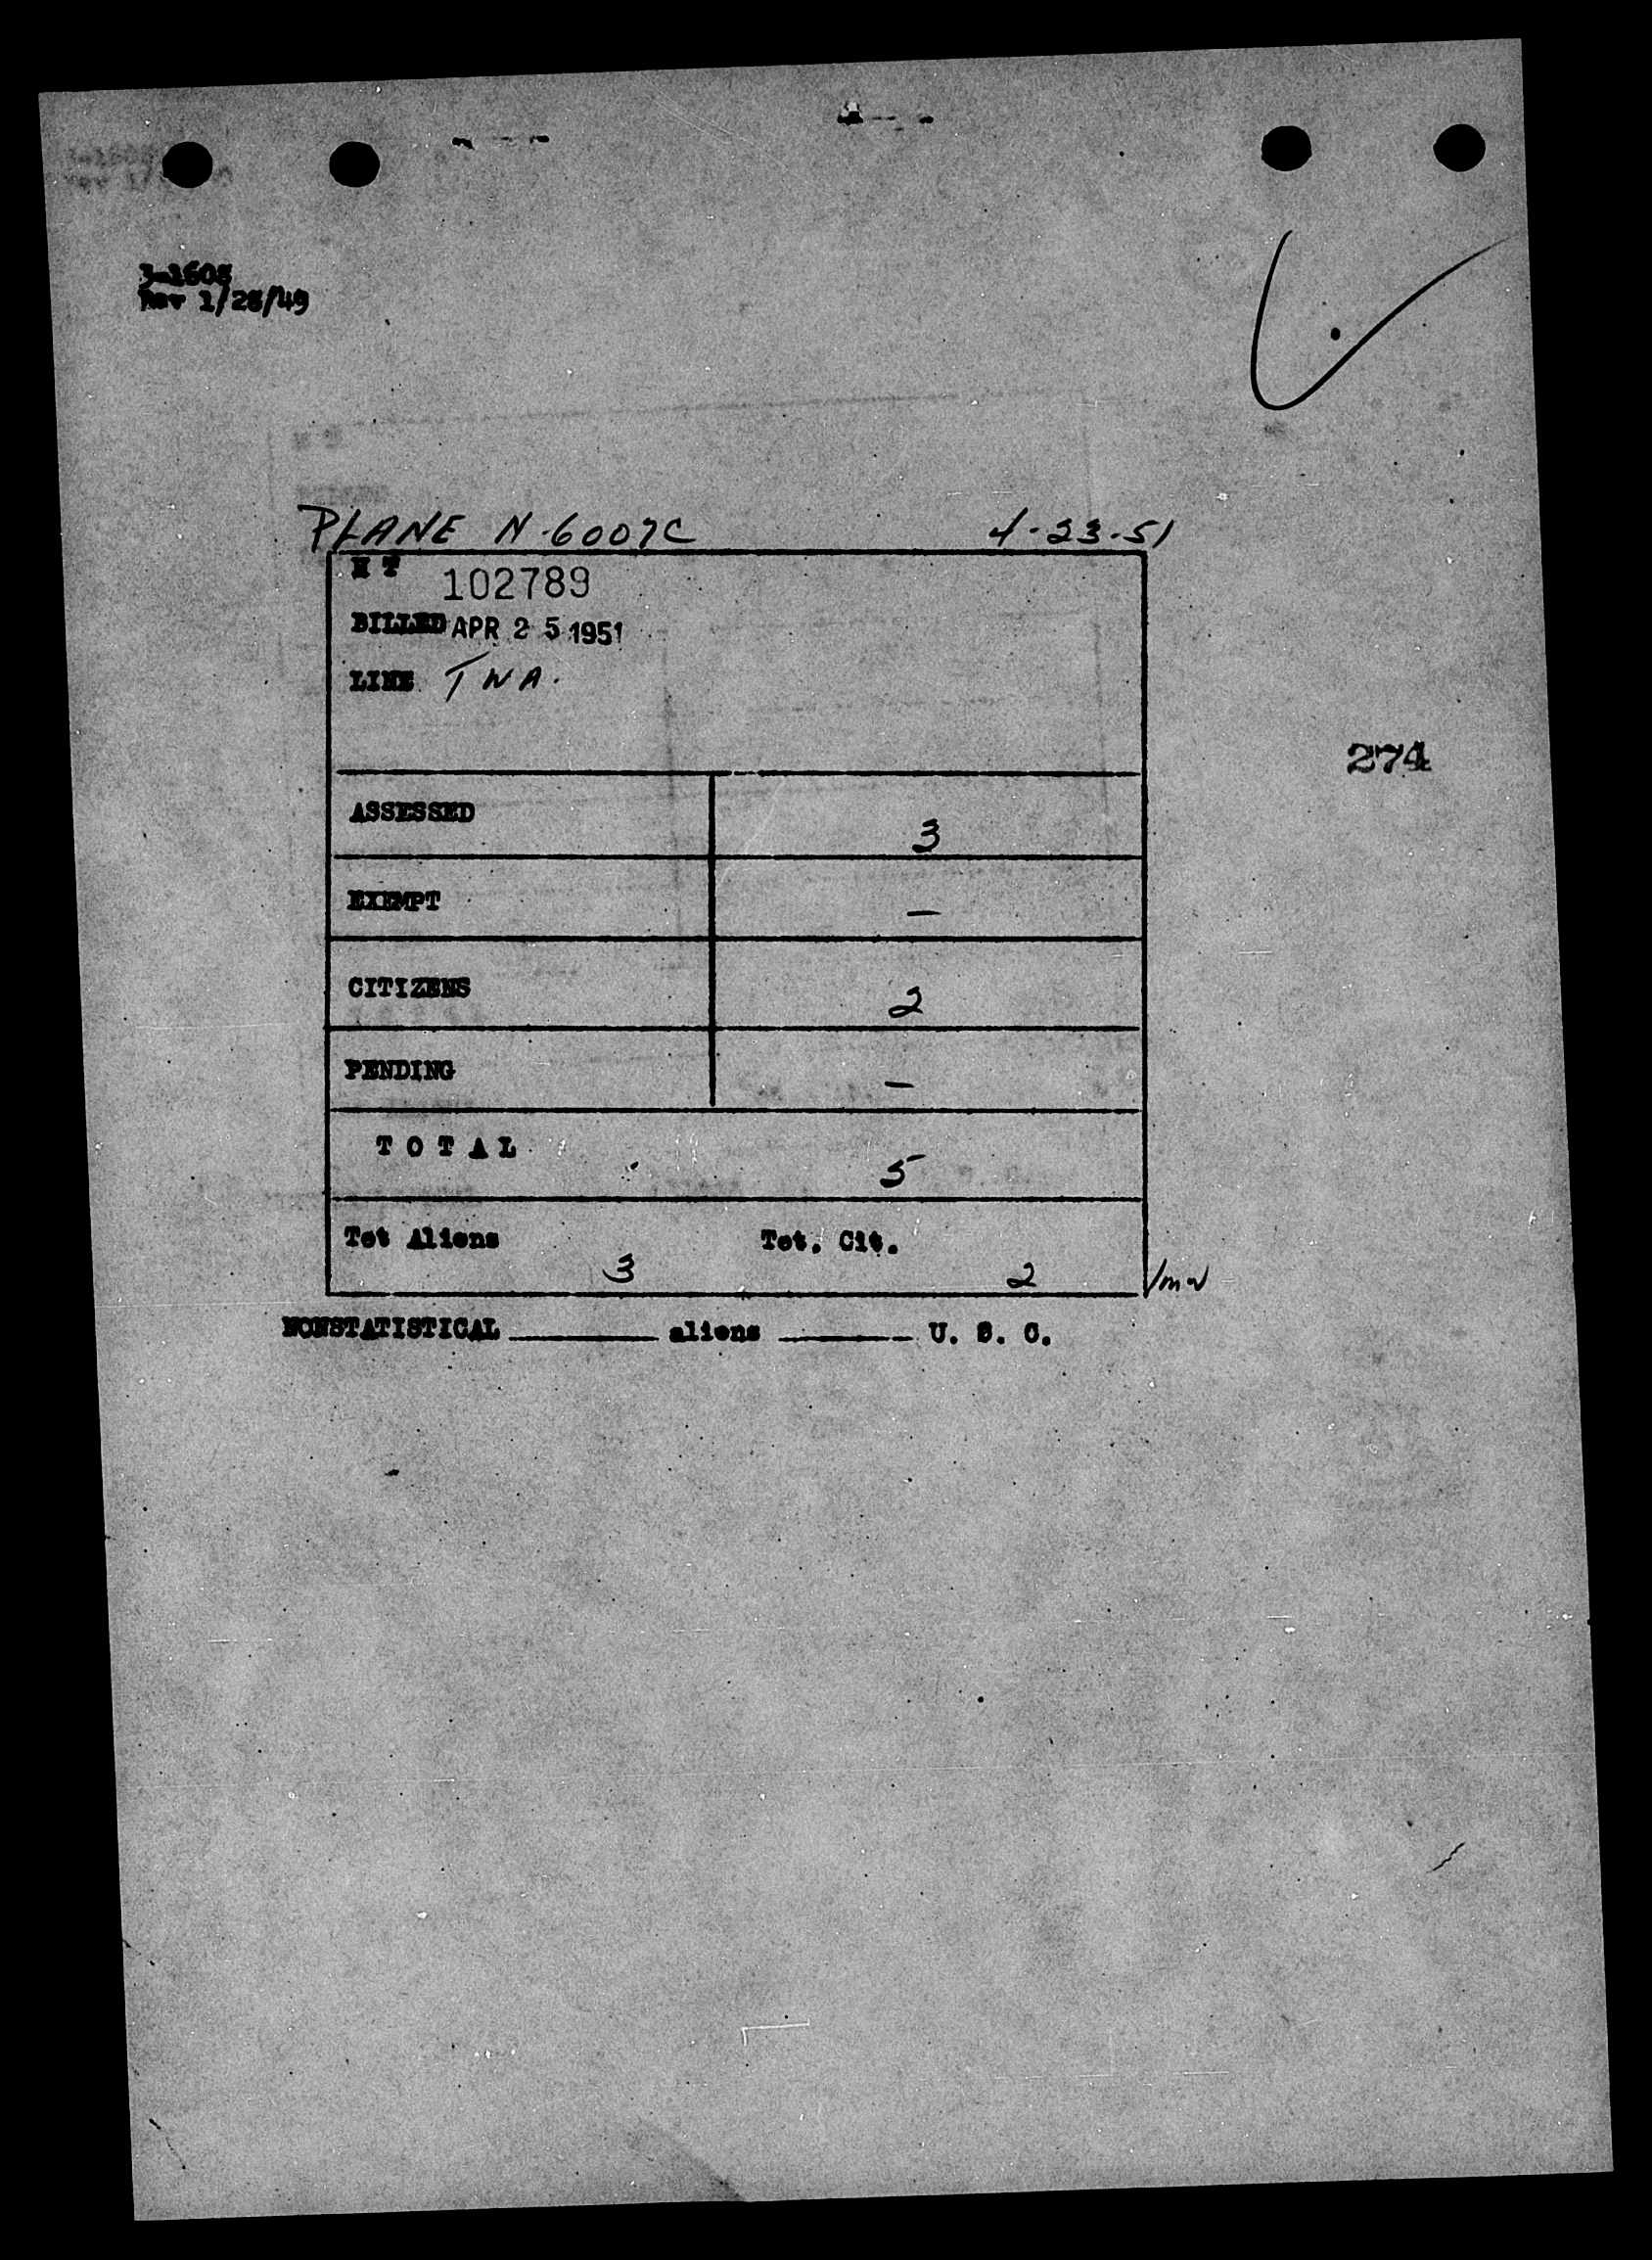 3-1608
Rev 1/28/49
PLANE N-6007C 4-23-51
H T 102789
BILLED APR 25 1951
LINE TWA.
274
ASSESSED 3
EXEMPT —
CITIZENS 2
PENDING —
T O T A L 5
Tot Aliens 3 Tot. Cit. 2
NONSTATISTICAL ______ aliens ______ U. S. C.